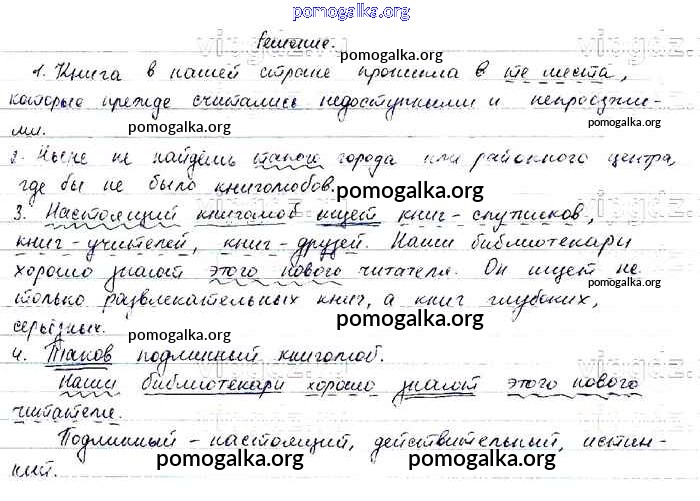 pomogalka.org
Решение.
pomogalka.org
1. Книга в нашей стране проникла в те места,
которые прежде считались недоступными и непроезжи-
ми.
pomogalka.org
pomogalka.org
2. Ныне не найдёшь такого города или районного центра,
где бы не было книголюбов.
pomogalka.org
3. Настоящий книголюб ищет книг-спутников,
книг-учителей, книг-друзей. Наши библиотекари
хорошо знают этого нового читателя. Он ищет не
только развлекательных книг, а книг глубоких,
pomogalka.org
серьёзных.
pomogalka.org
pomogalka.org
4. Таков подлинный книголюб.
Наши библиотекари хорошо знают этого нового
читателя.
Подлинный - настоящий, действительный, истин-
ний.
pomogalka.org
pomogalka.org